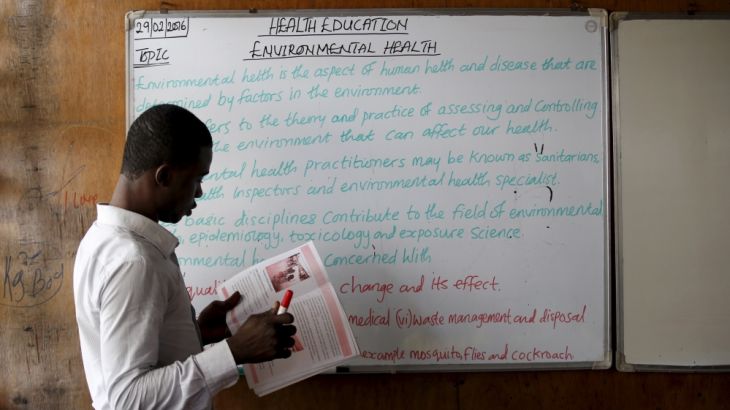 29/02/2016 HEALTH EDUCATION
TOPIC ENVIRONMENTAL HEALTH
Environmental helth is the aspect of human helth and disease that are
determined by factors in the environment.
to the theory and practice of assessing and Controlling
the environment that can affect our health.
health practitioners may be known as Sanitarians,
inspectors and environmental health specialist.
basic disciplines Contribute to the field of environmental
epidemiology, toxicology and exposure Science.
Concerned With
change and Its effect.
medical (vi) waste management and disposal
example mosquito, flies and cockroach